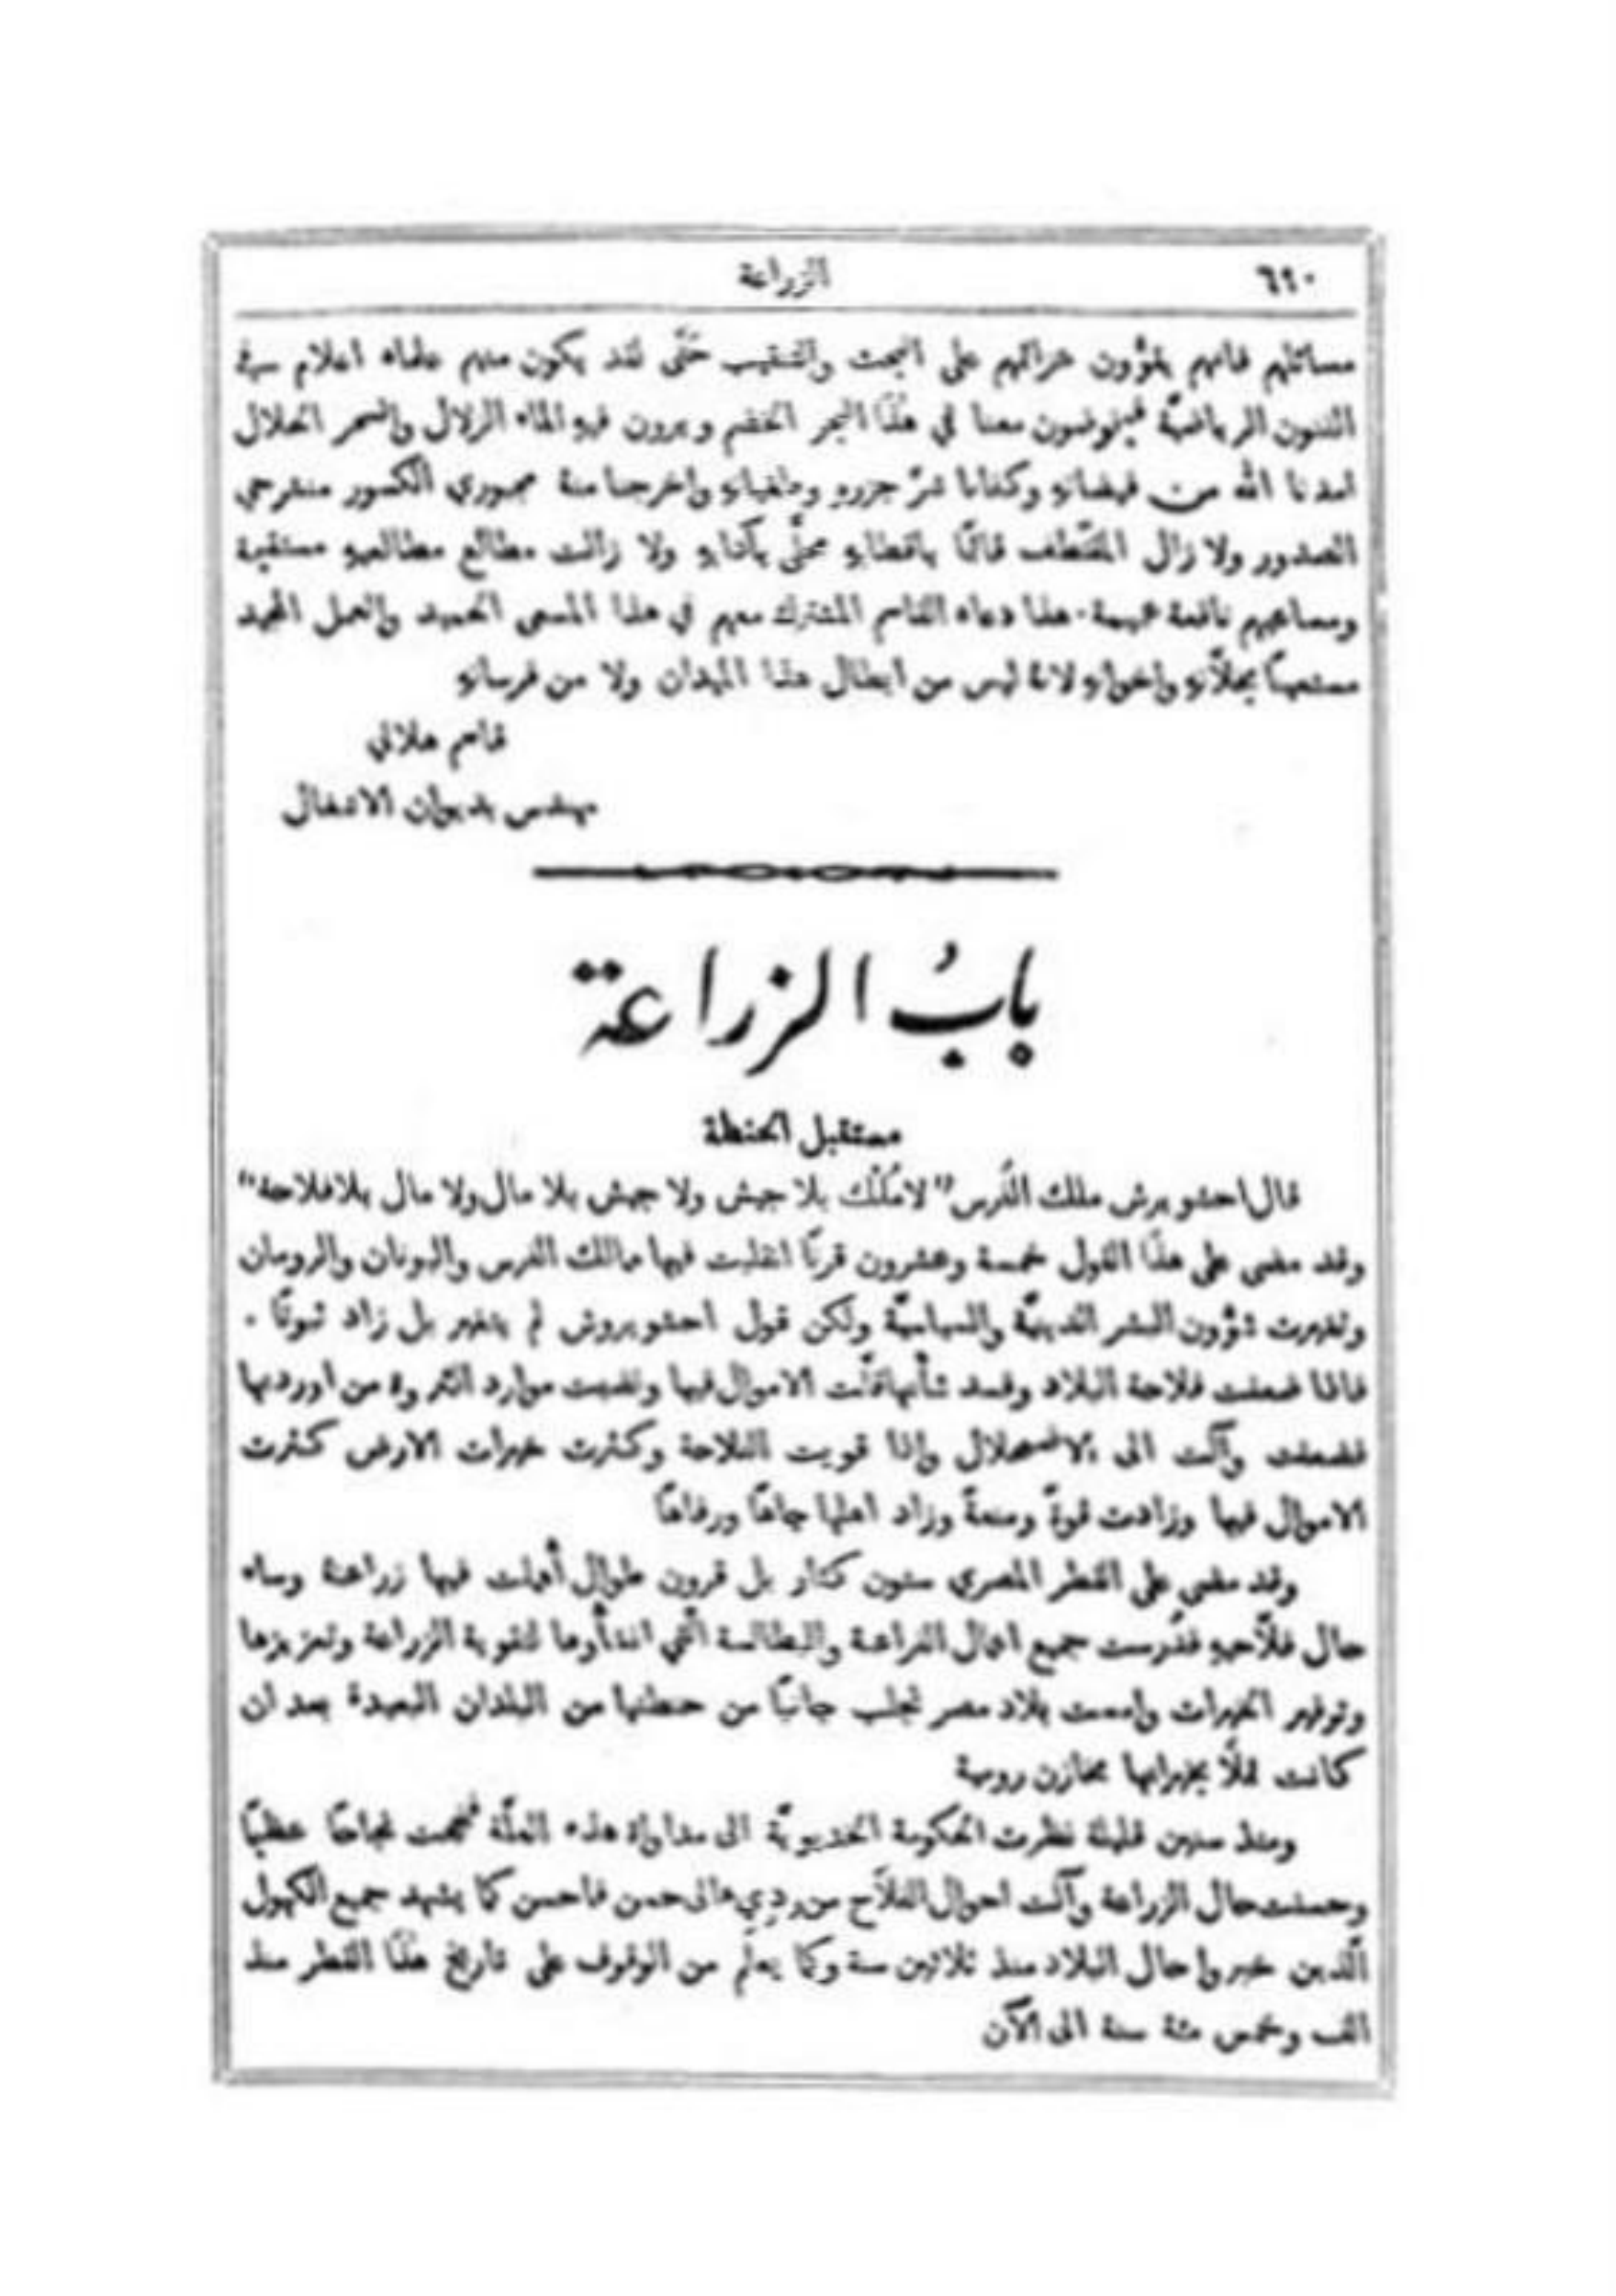 ٦٩٠
الزراعة
مسائلهم فانهم يقوُّون عزائمهم على البحث والتنقيب حَتَّى لقد يكون منهم علماء اعلام في
الفنون الرياضيَّة فيخوضون معنا في هٰذَا البحر الخضم ويرون فيهِ الماء الزلال والسحر الحلال
امدنا الله من فيضانهِ وكفانا شرَّ جزرهِ وطغيانهِ واخرجنا منهُ مجبوري الكسور منشرحي
الصدور ولا زال المقتطف قائمًا باقطابهِ محلًّى بآدابهِ ولا زالت مطالع مطالعيهِ مستقيمة
ومساعيهم نافعة عميمة . هذا دعاء القاسم المشترك معهم في هذا المسعى الحميد والعمل المجيد
مستعينًا بخلاَّنهِ واخوانهِ لانهُ ليس من ابطال هذا الميدان ولا من فرسانهِ
قاسم هلالي
مهندس بديوان الاشغال
بابُ الزراعة
مستقبل الحنطة
قال احشويرش ملك الفُرس "لا مُلْك بلا جيش ولا جيش بلا مال ولا مال بلا فلاحة"
وقد مضى على هٰذَا القول خمسة وعشرون قرنًا انقلبت فيها ممالك الفرس واليونان والرومان
وتغيرت شؤُون البشر الدينيَّة والسياسيَّة ولكن قول احشويروش لم يتغير بل زاد ثبوتًا .
فاذا ضعفت فلاحة البلاد وفسد شأنها قلَّت الاموال فيها ونضبت موارد الثروة من اوردتها
فضعفت وآلت الى الاضمحلال واذا قويت الفلاحة وكثرت خيرات الارض كثرت
الاموال فيها وزادت قوةً ومنعةً وزاد اهلها جاهًا ورفاهًا
وقد مضى على القطر المصري سنون كثار بل قرون طوال أُهملت فيها زراعتهُ وساء
حال فلاَّحيهِ فدُرست جميع اعمال الفراعنة والبطالسة الَّتي انشأُوها لتقوية الزراعة وتعزيزها
وتوفير الخيرات وامست بلاد مصر تجلب جانبًا من حنطتها من البلدان البعيدة بعد ان
كانت تملأُ بخيراتها مخازن رومية
ومنذ سنين قليلة نظرت الحكومة الخديويَّة الى مداواة هذه العلَّة فنجحت نجاحًا عظيمًا
وحسنت حال الزراعة وآلت احوال الفلاَّح من رديء الى حسن فاحسن كما يشهد جميع الكهول
الَّذين خبروا حال البلاد منذ ثلاثين سنة وكما يعلم من الوقوف على تاريخ هٰذَا القطر منذ
الف وخمس مئة سنة الى الآن